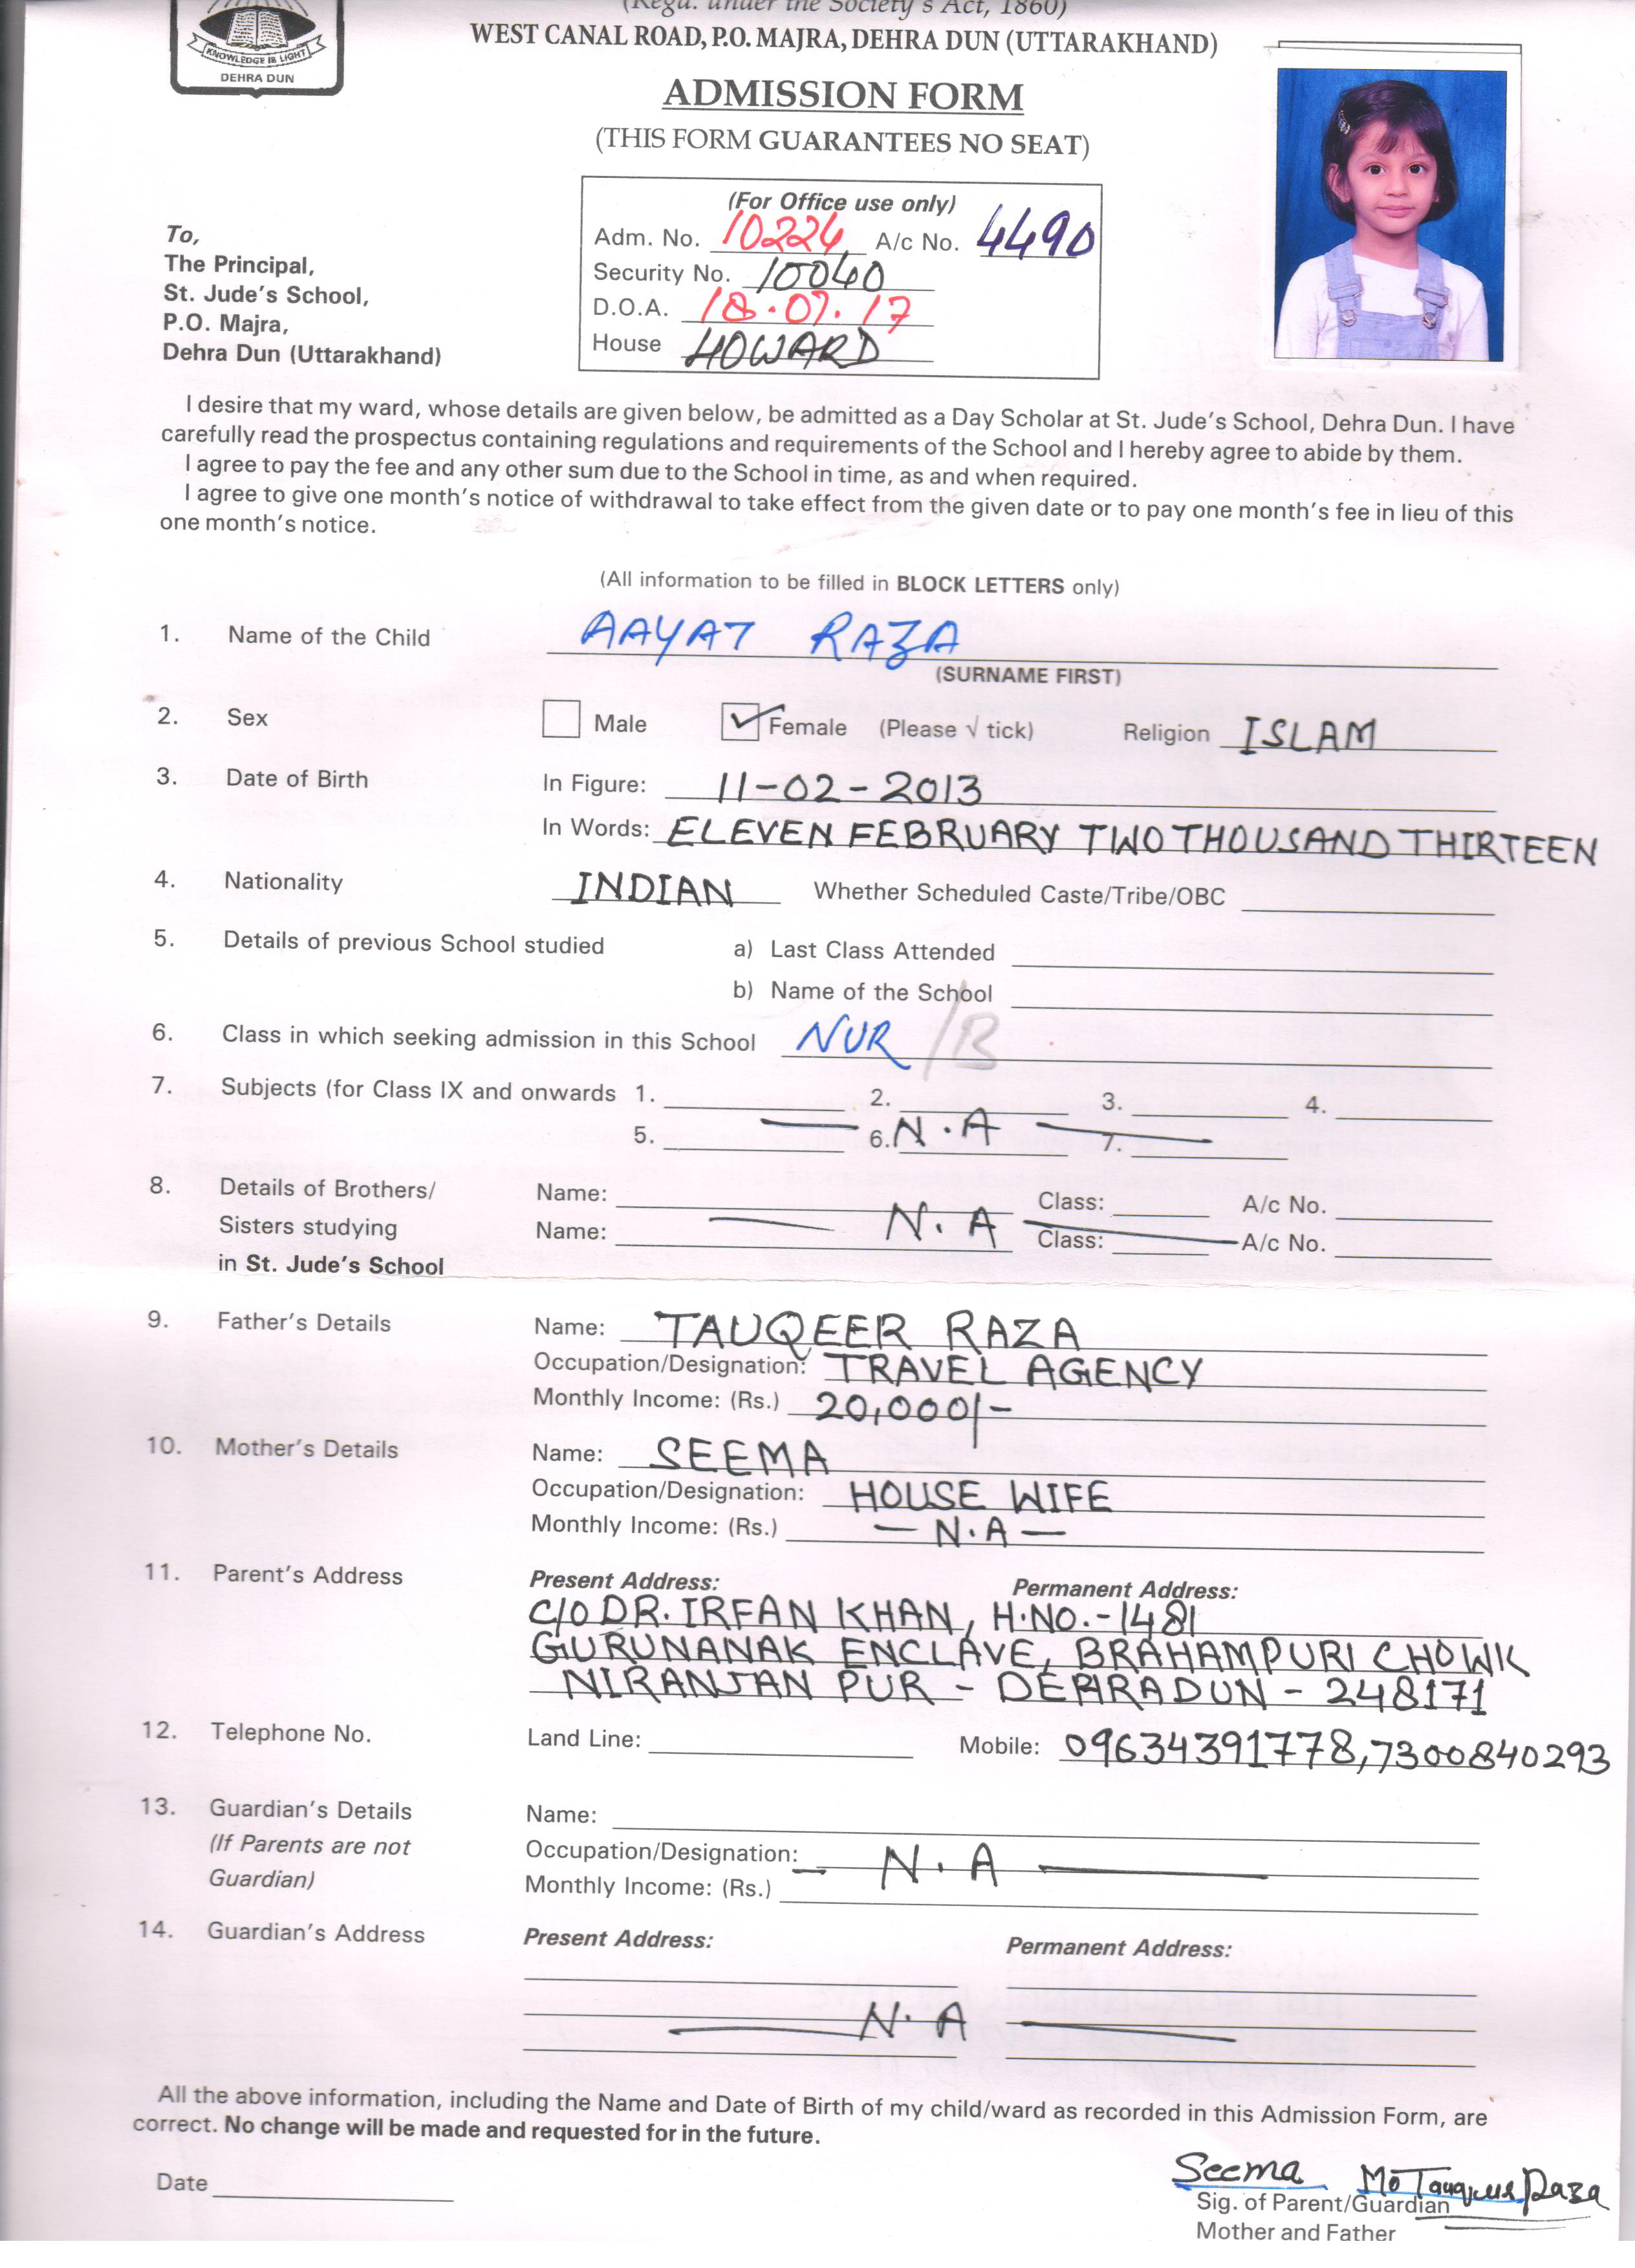 (Regd. under the Society's Act, 1860)
WEST CANAL ROAD, P.O. MAJRA, DEHRA DUN (UTTARAKHAND)
KNOWLEDGE IS LIGHT
DEHRA DUN
ADMISSION FORM
(THIS FORM GUARANTEES NO SEAT)
(For Office use only)
Adm. No. 10224 A/c No. 4490
Security No. 10040
D.O.A. 18.07.17
House HOWARD
To,
The Principal,
St. Jude's School,
P.O. Majra,
Dehra Dun (Uttarakhand)
I desire that my ward, whose details are given below, be admitted as a Day Scholar at St. Jude's School, Dehra Dun. I have
carefully read the prospectus containing regulations and requirements of the School and I hereby agree to abide by them.
I agree to pay the fee and any other sum due to the School in time, as and when required.
I agree to give one month's notice of withdrawal to take effect from the given date or to pay one month's fee in lieu of this
one month's notice.
(All information to be filled in BLOCK LETTERS only)
1. Name of the Child AAYAT RAZA
(SURNAME FIRST)
2. Sex Male Female (Please √ tick) Religion ISLAM
3. Date of Birth In Figure: 11-02-2013
In Words: ELEVEN FEBRUARY TWO THOUSAND THIRTEEN
4. Nationality INDIAN Whether Scheduled Caste/Tribe/OBC
5. Details of previous School studied a) Last Class Attended
b) Name of the School
6. Class in which seeking admission in this School NUR /B
7. Subjects (for Class IX and onwards 1. 2. 3. 4.
5. 6. N.A 7.
8. Details of Brothers/ Name: Class: A/c No.
Sisters studying Name: N.A Class: A/c No.
in St. Jude's School
9. Father's Details Name: TAUQEER RAZA
Occupation/Designation: TRAVEL AGENCY
Monthly Income: (Rs.) 20,000/-
10. Mother's Details Name: SEEMA
Occupation/Designation: HOUSE WIFE
Monthly Income: (Rs.) — N.A —
11. Parent's Address Present Address: Permanent Address:
C/O DR. IRFAN KHAN, H.NO.-1481
GURUNANAK ENCLAVE, BRAHAMPURI CHOWK
NIRANJAN PUR - DEHRADUN - 248171
12. Telephone No. Land Line: Mobile: 09634391778, 7300840293
13. Guardian's Details Name:
(If Parents are not Occupation/Designation: — N.A —
Guardian) Monthly Income: (Rs.)
14. Guardian's Address Present Address: Permanent Address:
N.A
All the above information, including the Name and Date of Birth of my child/ward as recorded in this Admission Form, are
correct. No change will be made and requested for in the future.
Seema Raza
Date Sig. of Parent/Guardian
Mother and Father